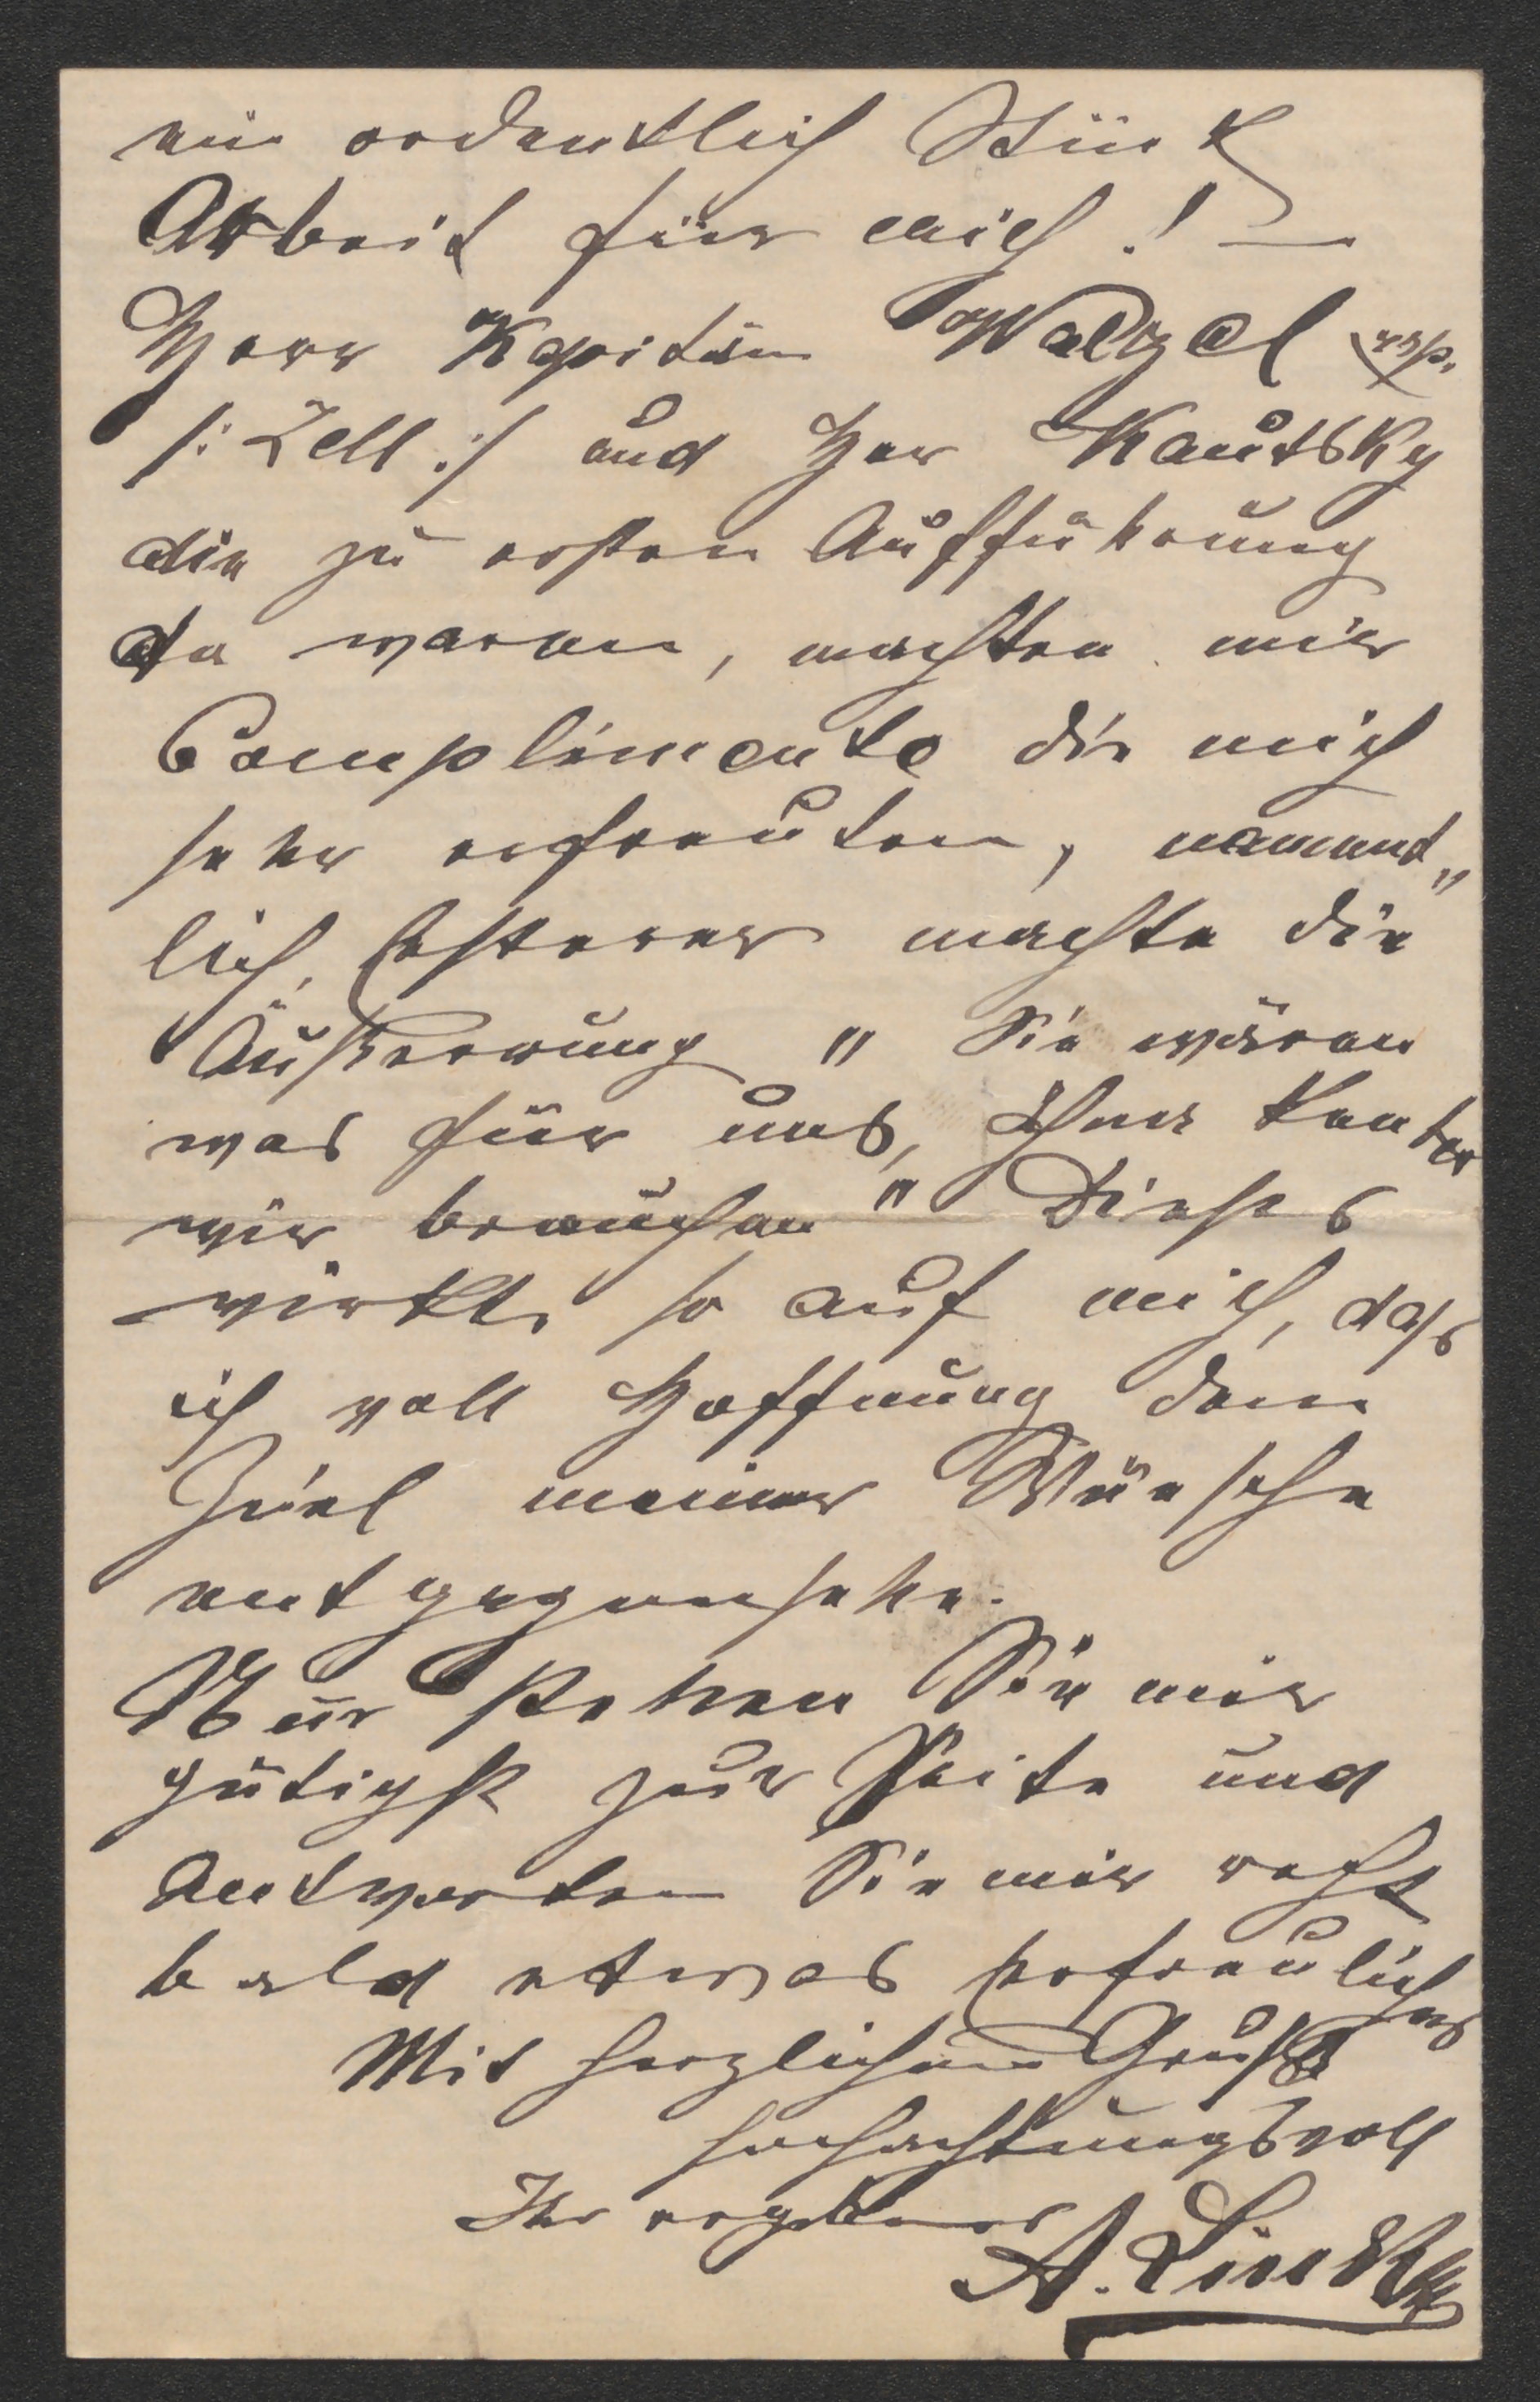 ein ordentlich Stück
Arbeit für mich! —
Herr Kapitän Walzel resp.
/: Zell :/ und Herr Kautsky
die zu ersten Aufführung
da waren, machten mir
Complimente die mich
sehr erfreuten, nament„
lich, Ersterer machte die
Äußerung „ Sie wären
was für uns, Ihner Leute
wir brauchen " Dieses
wirkte so auf mich, dass
ich voll Hoffnung dem
Ziel meiner Wünsche
entgegensehe.
Nur stehen Sie mir
gütigst zur Seite und
Antworten Sie mir recht
bald etwas Erfreuliches
Mit herzlichem Gruße
hochachtungsvoll
Ihr ergebener
A. Linck